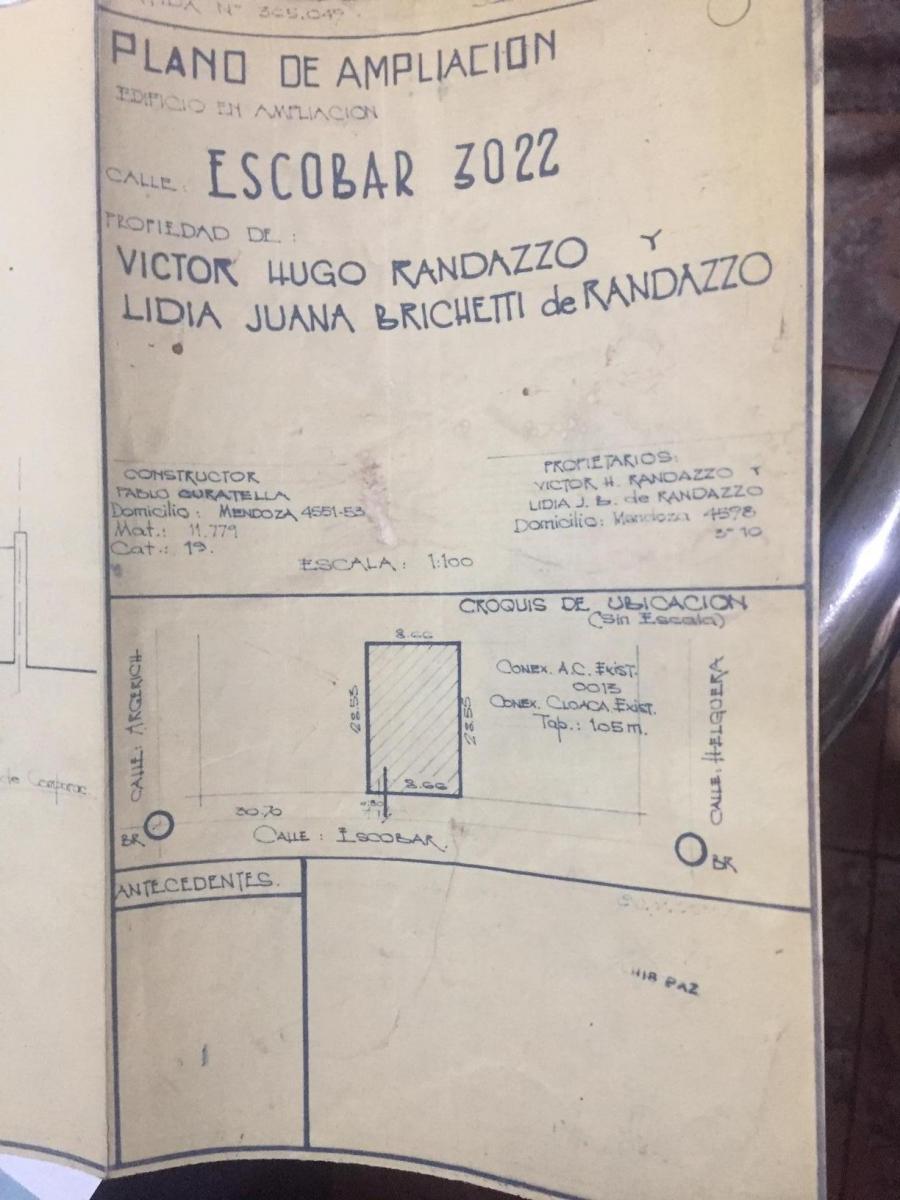 Nº 365.049
PLANO DE AMPLIACION
EDIFICIO EN AMPLIACION
CALLE: ESCOBAR 3022
PROPIEDAD DE:
VICTOR HUGO RANDAZZO Y
LIDIA JUANA BRICHETTI de RANDAZZO
CONSTRUCTOR
PABLO GURATELLA
Domicilio: MENDOZA 4551-53
Mat.: 11.779
Cat.: 19.
PROPIETARIOS:
VICTOR H. RANDAZZO Y
LIDIA J. B. de RANDAZZO
Domicilio: Mendoza 4598
3º 10
ESCALA: 1:100
CROQUIS DE UBICACION
(Sin Escala)
8.66
CALLE: ARGERICH
28.55
28.55
CONEX. A.C. EXIST.
0013
CONEX. CLOACA EXIST.
Tap.: 1.05 m.
CALLE: HELGUERA
8.66
30.70
BR
CALLE: ESCOBAR.
BR
ANTECEDENTES.
PAZ